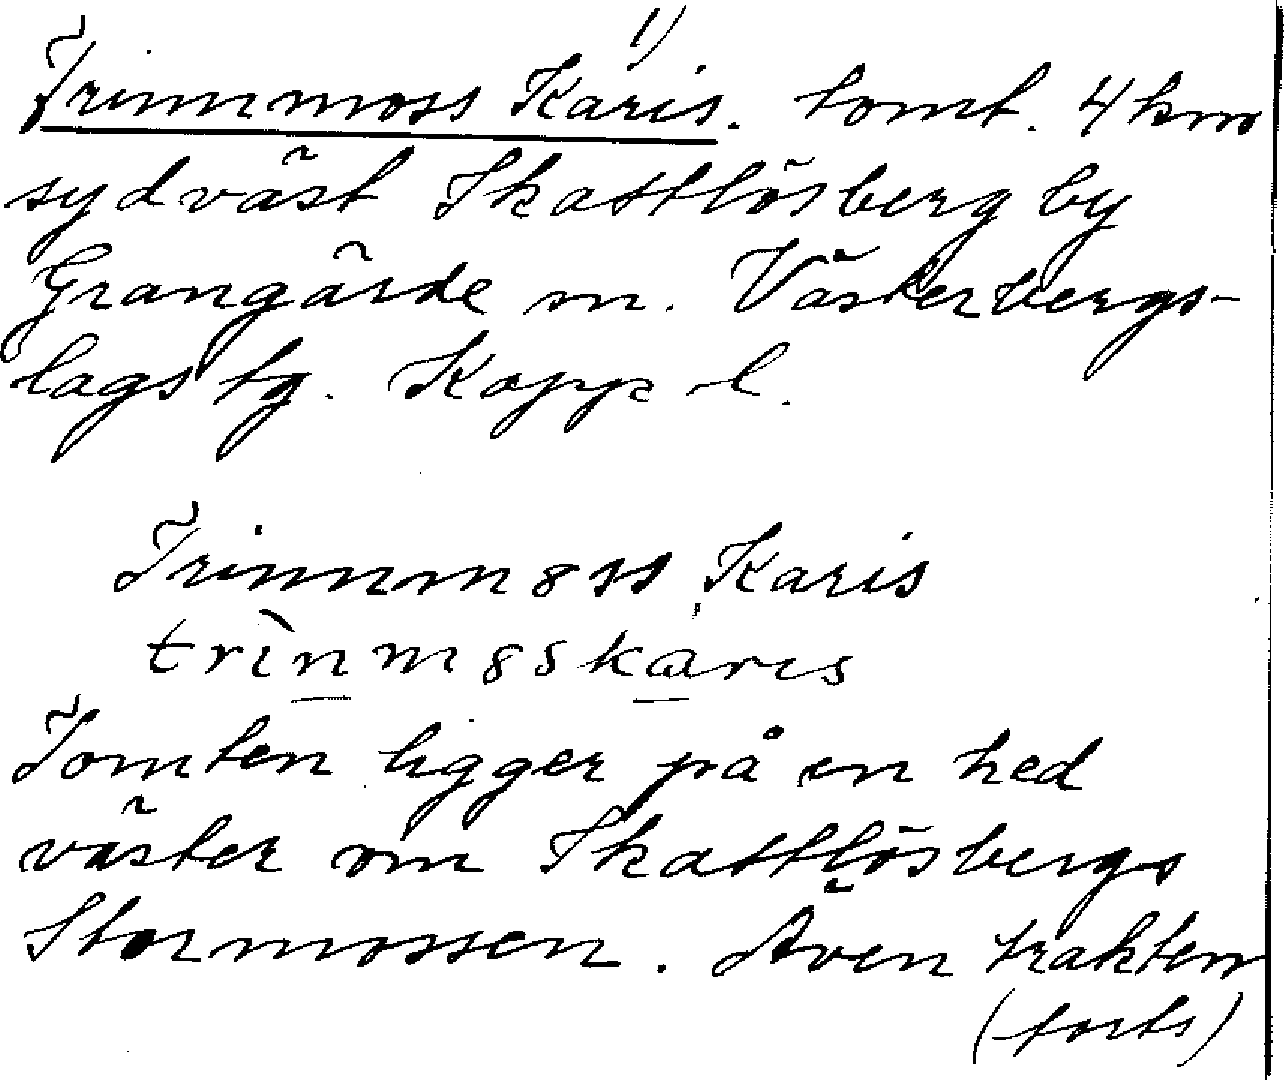 1)
Trinnmoss Karis. tomt. 4 km
sydväst Skattlösberg by
Grangärde sn. Västerbergs-
lags tg. Kopp. l.
Trinnm8ss Karis
trìnm8skarıs
Tomten ligger på en hed
väster om Skattlösbergs
Stormossen. Även trakten
(forts)